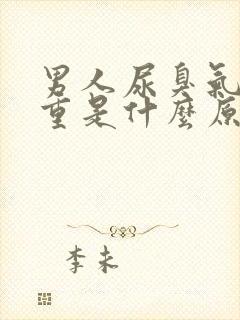 男人尿臭氣
重是什麼原
李未